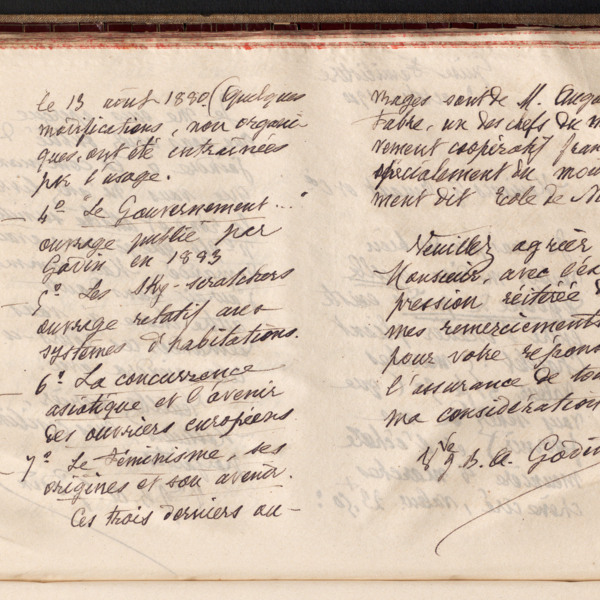 le 13 août 1880. (Quelques
modifications, non organi-
ques, ont été entraînées
par l'usage.
4º "Le Gouvernement..."
ouvrage publié par
Godin en 1883
5º Les Sky-scratchers
ouvrage relatif aux
systèmes d'habitations.
6º La concurrence
asiatique et l'avenir
des ouvriers européens
7º Le Féminisme, ses
origines et son avenir.
Ces trois derniers ou-
vrages sont de M. Augu
Fabre, un des chefs du m
vement coopératif fran
spécialement du mou
ment dit Ecole de N
Veuillez agréer
Monsieur, avec l'ex-
pression réitérée d
mes remerciements
pour votre répons
l'assurance de tou
ma considération
Vve J. B. A. Godin